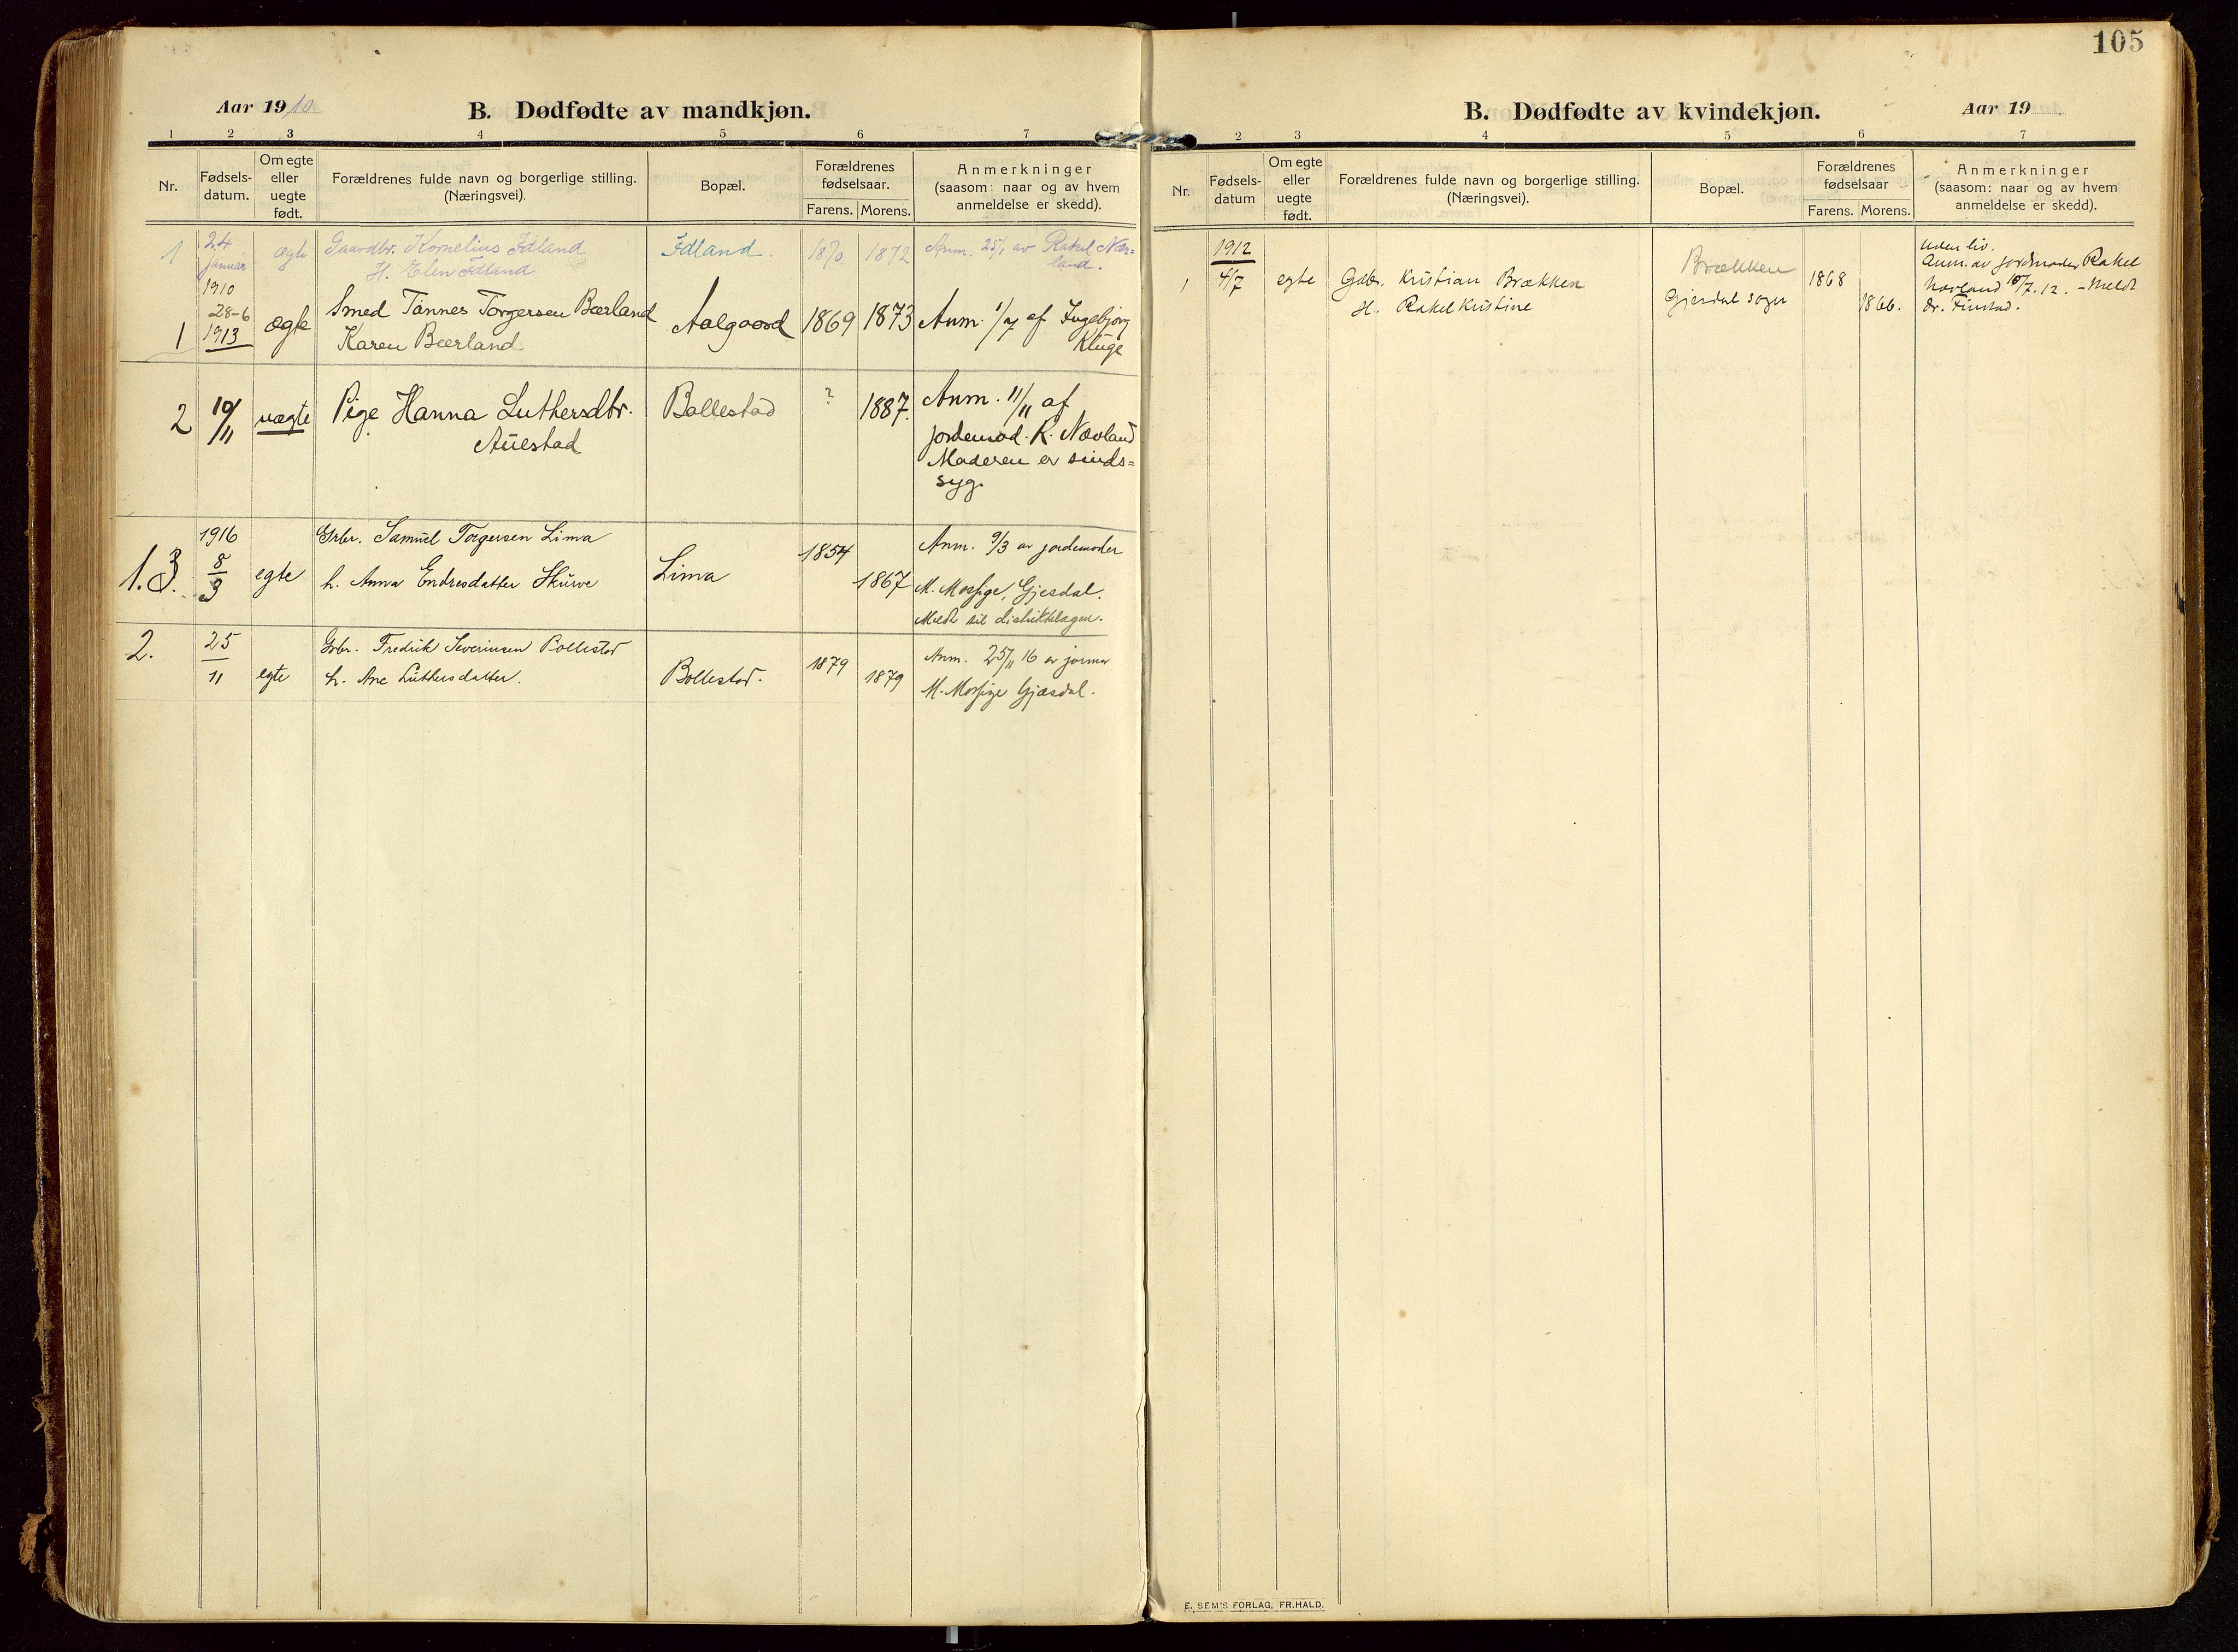 105
Aar 1910
B. Dødfødte av mandkjøn.
1 2 3 4 5 6 7
Nr.
Fødsels-
datum.
Om egte
eller
uegte
født.
Forældrenes fulde navn og borgerlige stilling.
(Næringsvei).
Bopæl.
Forældrenes
fødselsaar.
Farens. Morens.
Anmerkninger
(saasom: naar og av hvem
anmeldelse er skedd).
1
24
Januar
1910
ægte
Gaardbr. Kornelius Idland
H. Elen Idland
Idland.
1870 1872
Anm. 25/1 av Rakel Næv-
land.
1
28-6
1913
ægte
Smed Tønnes Torgersen Bærland
Karen Bærland
Aalgaard
1869 1873
Anm. 1/7 af Ingebjørg
Kluge
2
10/11
uægte
Pige Hanna Luthersdtr.
Auestad
Bollestad
?
1887.
Anm. 11/11 af
jordemod. R. Nævland
Moderen er sinds-
syg.
1.3.
1916
8
3
egte
Grbr. Samuel Torgersen Lima
h. Anna Endresdatter Skurve
Lima
1854
1867
Anm. 9/3 av jordemoder
M. Mossige, Gjesdal.
Meldt til distriktslægen.
2.
25
11
egte
Grbr. Fredrik Severinsen Bollestad
h. Ane Luthersdatter.
Bollestad.
1879
1879
Anm. 25/11 16 av jormor
M. Mossige Gjæsdal.
B. Dødfødte av kvindekjøn.
Aar 19
2 3 4 5 6 7
Nr.
Fødsels-
datum
Om egte
eller
uegte
født.
Forældrenes fulde navn og borgerlige stilling.
(Næringsvei).
Bopæl.
Forældrenes
fødselsaar
Farens. Morens.
Anmerkninger
(saasom: naar og av hvem
anmeldelse er skedd).
1
1912
4/7
egte
Gdbr. Kristian Brækken
H. Rakel Kristine
Brækken
Gjesdal sogn
1868
1866.
Uden liv.
Anm. av jordmoder Rakel
Nævland 10/7.12. – Meldt
dr. Finstad.
E. SEM'S FORLAG, FR.HALD.